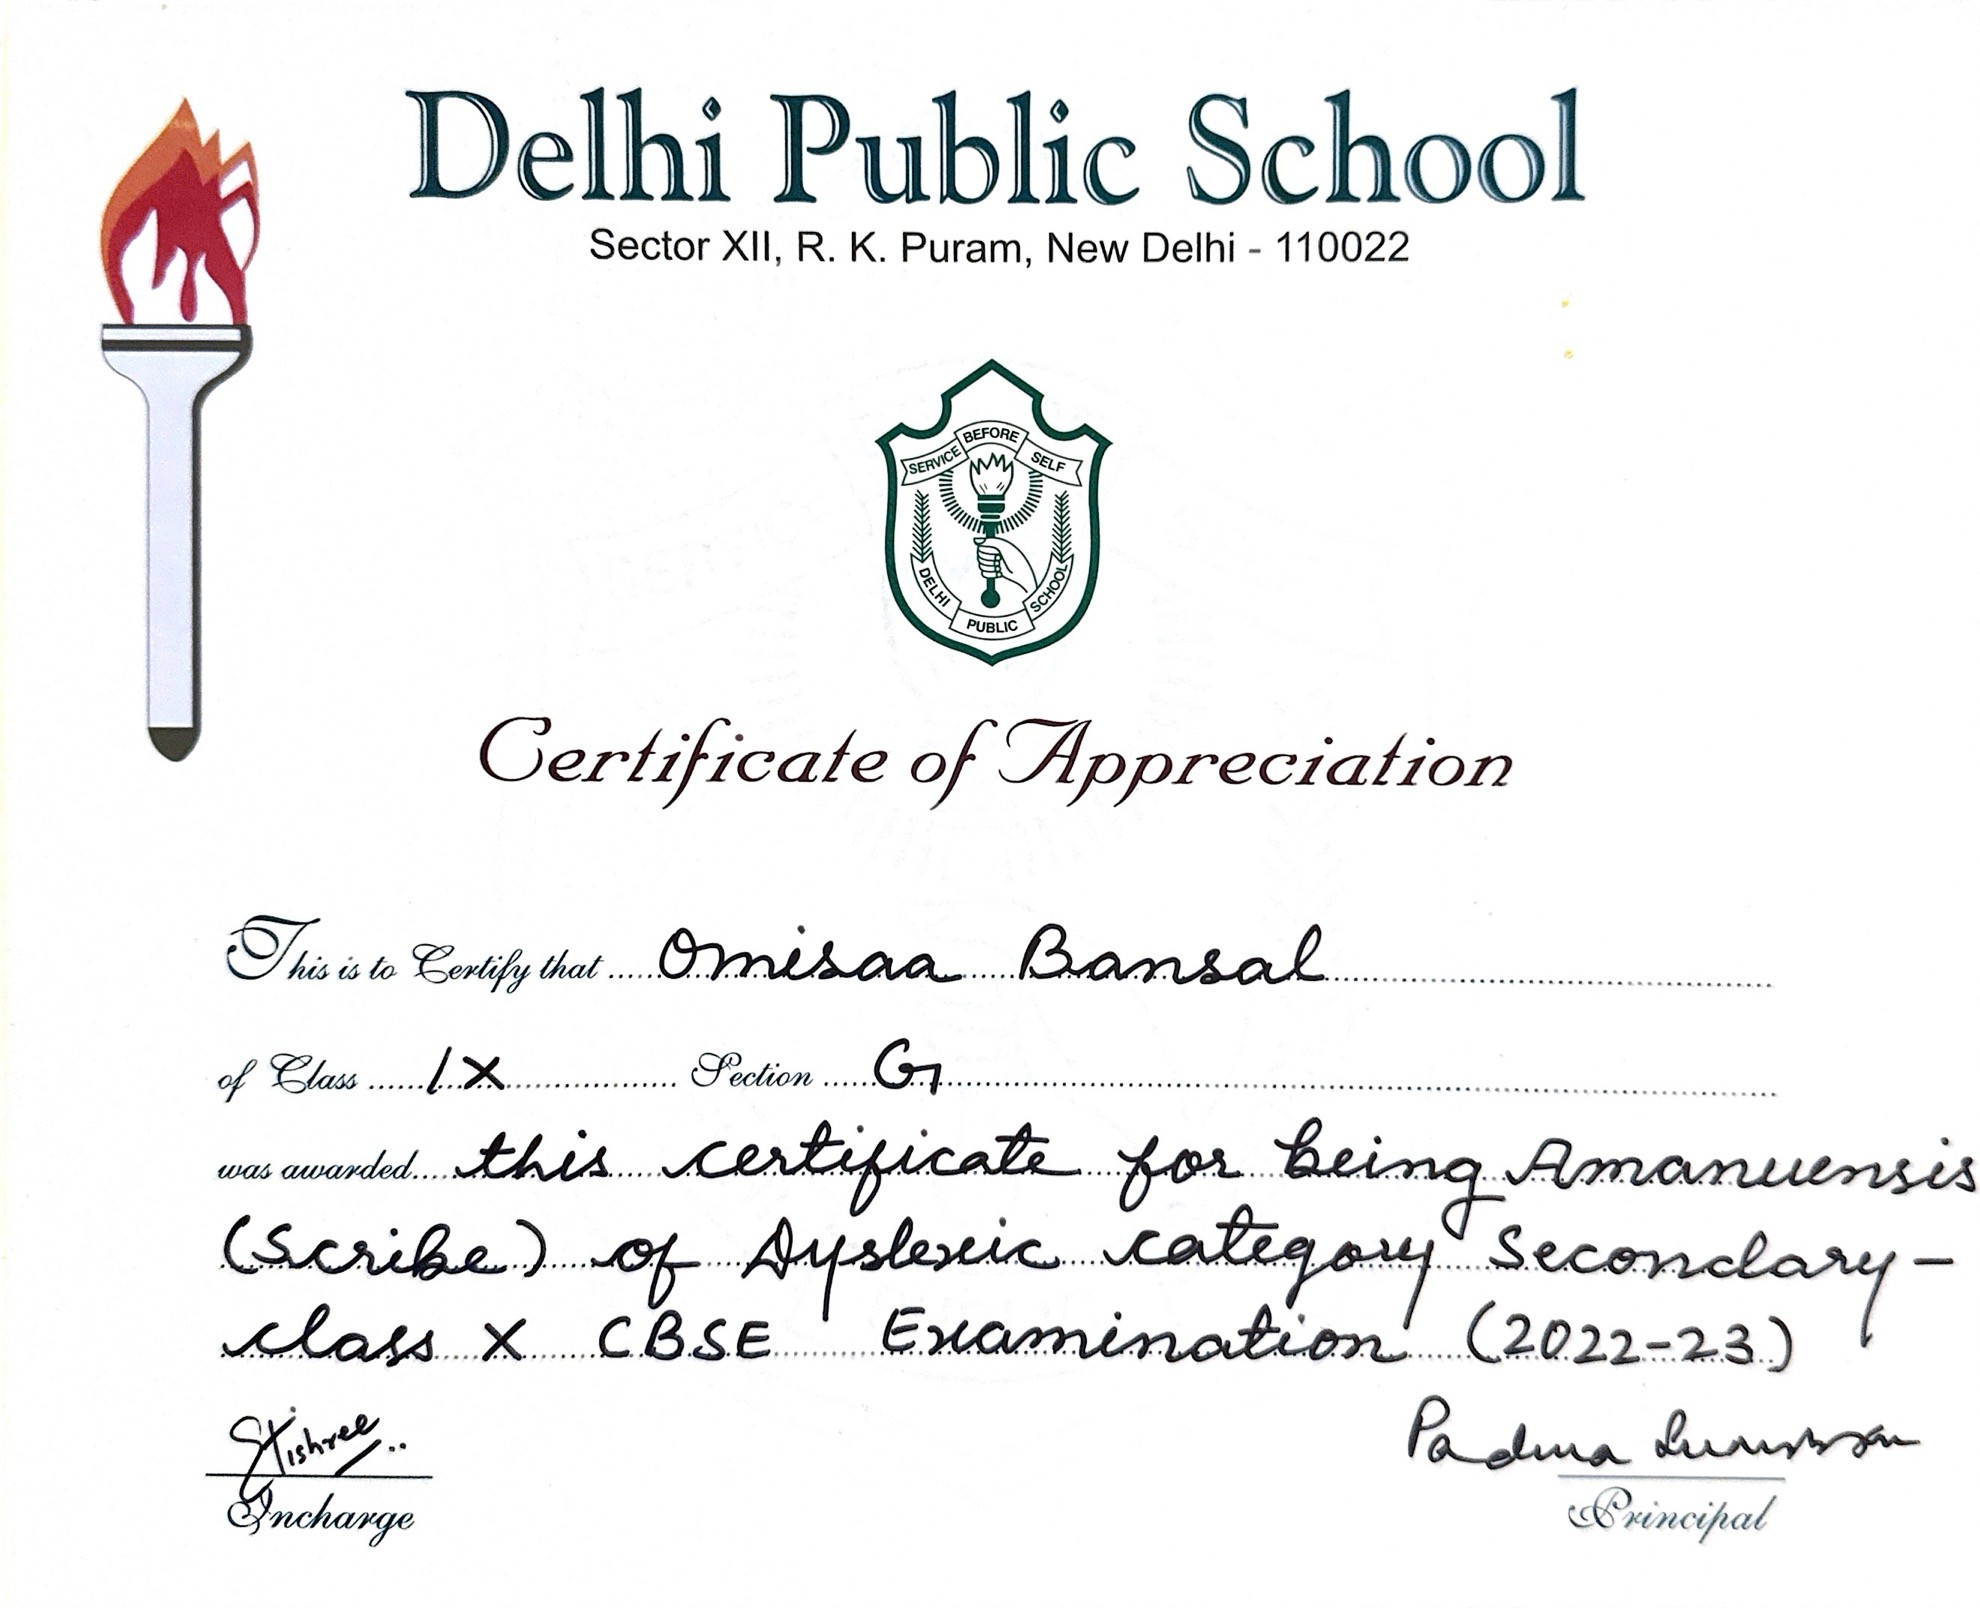 Delhi Public School
Sector XII, R. K. Puram, New Delhi - 110022
SERVICE BEFORE SELF
DELHI PUBLIC SCHOOL
Certificate of Appreciation
This is to Certify that Omisaa Bansal
of Class IX Section G
was awarded this certificate for being Amanuensis
(Scribe) of Dyslexic category Secondary-
class X CBSE Examination (2022-23)
Padma
Incharge
Principal